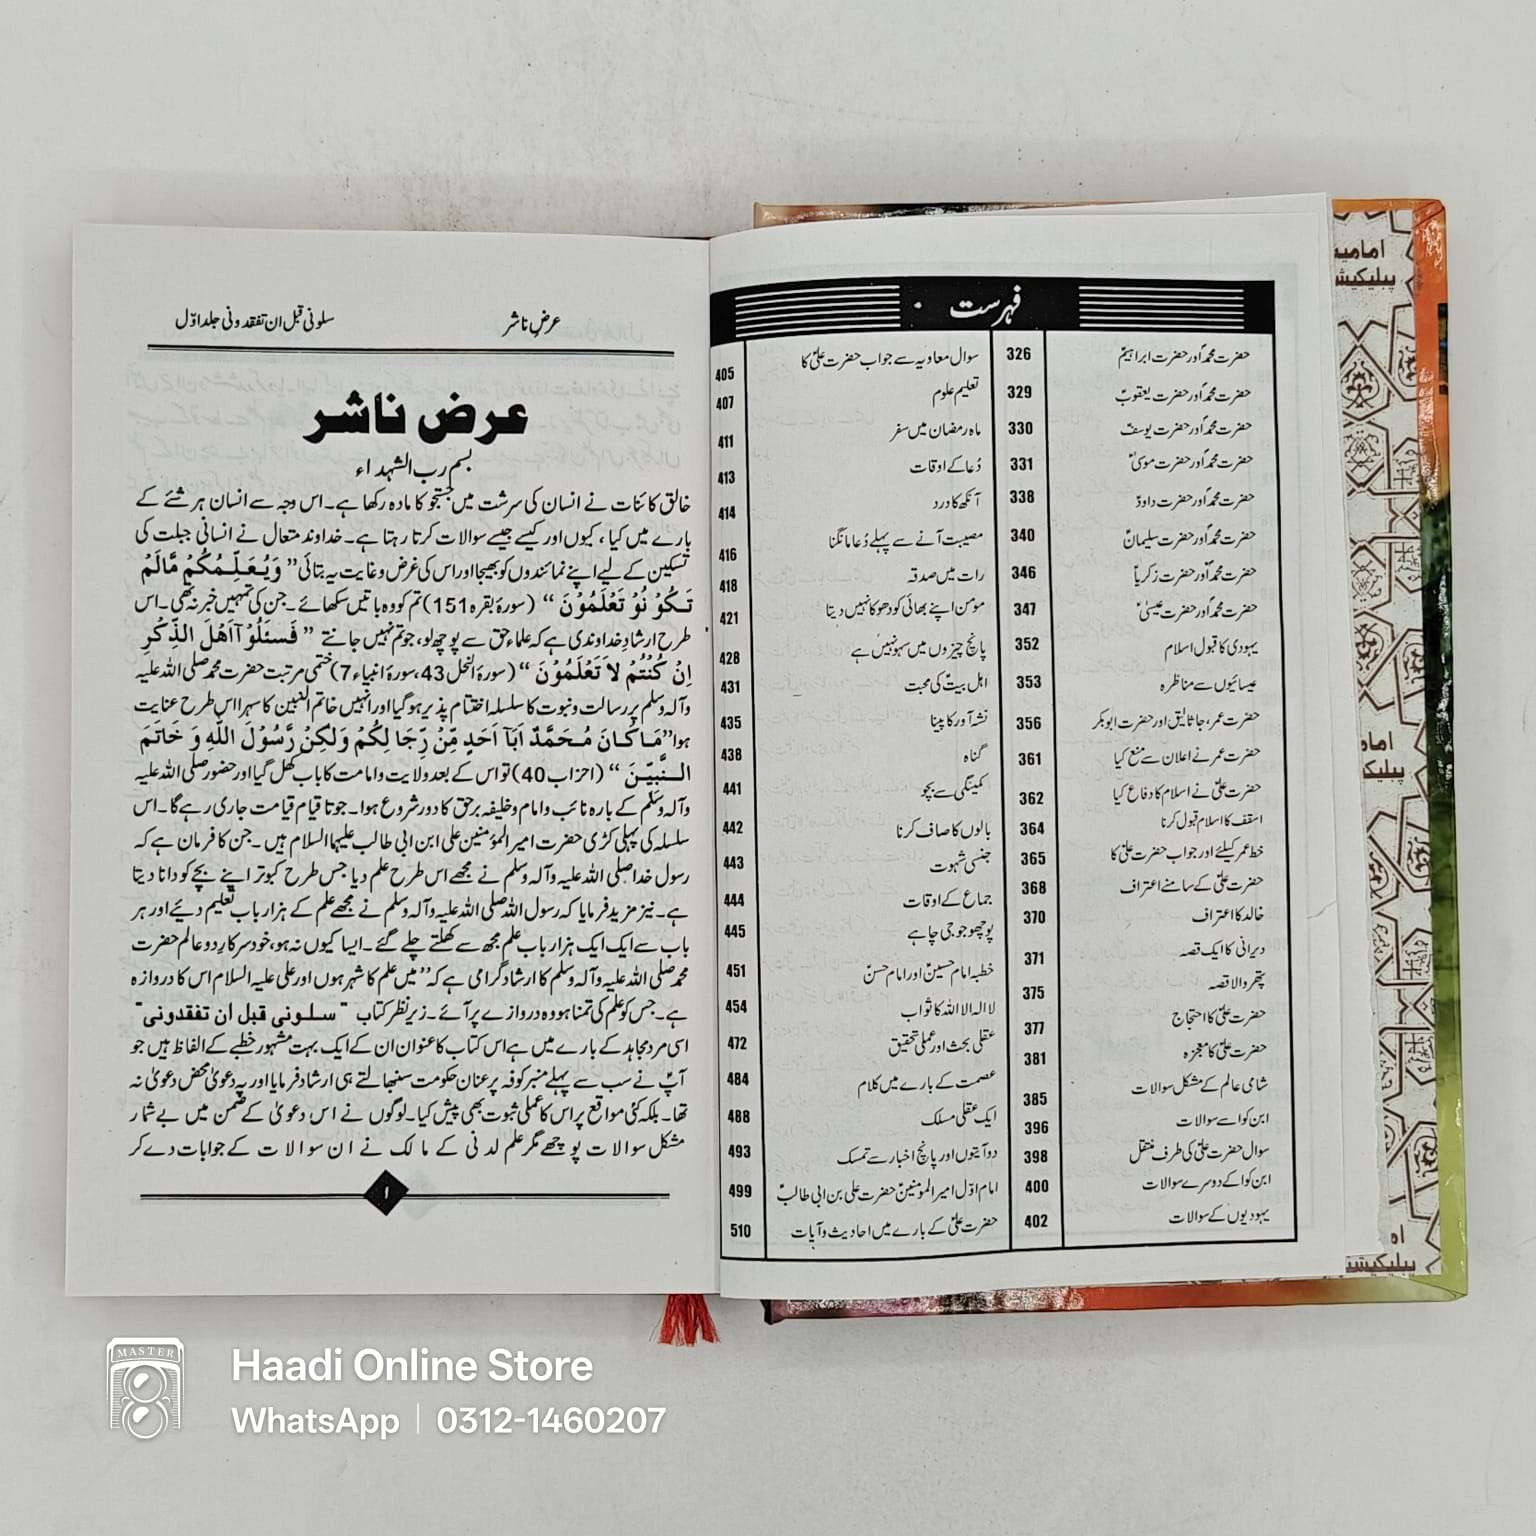 فہرست
حضرت محمدؐ اور حضرت ابراہیمؑ 326
حضرت محمدؐ اور حضرت یعقوبؑ 329
حضرت محمدؐ اور حضرت یوسفؑ 330
حضرت محمدؐ اور حضرت موسیٰؑ 331
حضرت محمدؐ اور حضرت داودؑ 338
حضرت محمدؐ اور حضرت سلیمانؑ 340
حضرت محمدؐ اور حضرت زکریاؑ 346
حضرت محمدؐ اور حضرت عیسیٰؑ 347
یہودی کا قبول اسلام 352
عیسائیوں سے مناظرہ 353
حضرت عمر، جاثالیق اور حضرت ابوبکر 356
حضرت عمر نے اعلان سے منع کیا 361
حضرت علیؑ نے اسلام کا دفاع کیا 362
اسقف کا اسلام قبول کرنا 364
خط عمر کیلئے اور جواب حضرت علیؑ کا 365
حضرت علیؑ کے سامنے اعتراف 368
خالد کا اعتراف 370
دیرانی کا ایک قصہ 371
پتھر والا قصہ 375
حضرت علیؑ کا احتجاج 377
حضرت علیؑ کا معجزہ 381
شامی عالم کے مشکل سوالات 385
ابن کوا سے سوالات 396
سوال حضرت علیؑ کی طرف منتقل 398
ابن کوا کے دوسرے سوالات 400
یہودیوں کے سوالات 402
سوال معاویہ سے جواب حضرت علیؑ کا 405
تعلیم علوم 407
ماہ رمضان میں سفر 411
دُعا کے اوقات 413
آنکھ کا درد 414
مصیبت آنے سے پہلے دُعا مانگنا 416
رات میں صدقہ 418
مومن اپنے بھائی کو دھوکا نہیں دیتا 421
پانچ چیزوں میں سہو نہیں ہے 428
اہل بیتؑ کی محبت 431
نشہ آور کا پینا 435
گناہ 438
کمینگی سے بچو 441
بالوں کا صاف کرنا 442
جنسی شہوت 443
جماع کے اوقات 444
پوچھو جو جی چاہے 445
خطبہ امام حسینؑ اور امام حسنؑ 451
لا الہ الا اللہ کا ثواب 454
عقلی بحث اور عملی تحقیق 472
عصمت کے بارے میں کلام 484
ایک عقلی مسلک 488
دو آیتوں اور پانچ اخبار سے تمسک 493
امام اوّل امیر المومنینؑ حضرت علی بن ابی طالبؑ 499
حضرت علیؑ کے بارے میں احادیث و آیات 510
عرضِ ناشر سلونی قبل ان تفقدونی جلد اوّل
عرض ناشر
بسم رب الشہداء
خالق کائنات نے انسان کی سرشت میں جستجو کا مادہ رکھا ہے۔ اس وجہ سے انسان ہر شئے کے
بارے میں کیا، کیوں اور کیسے جیسے سوالات کرتا رہتا ہے۔ خداوند متعال نے انسانی جبلت کی
تسکین کے لیے اپنے نمائندوں کو بھیجا اور اس کی غرض و غایت یہ بتائی ”وَیُعَلِّمُکُمْ مَّالَمْ
تَکُوْنُوْ تَعْلَمُوْنَ“ (سورۂ بقرہ 151) تم کو وہ باتیں سکھائے۔ جن کی تمہیں خبر نہ تھی۔ اس
طرح ارشادِ خداوندی ہے کہ علماء حق سے پوچھ لو، جو تم نہیں جانتے ”فَسْئَلُوْآ اَھْلَ الذِّکْرِ
اِنْ کُنْتُمْ لاَ تَعْلَمُوْنَ“ (سورۂ النحل 43، سورۂ انبیاء 7) ختمی مرتبت حضرت محمد صلی اللہ علیہ
وآلہ وسلم پر رسالت و نبوت کا سلسلہ اختتام پذیر ہو گیا اور انہیں خاتم النبین کا سہرا اس طرح عنایت
ہوا ”مَاکَانَ مُحَمَّدٌ اَبَآ اَحَدٍ مِّنْ رِّجَالِکُمْ وَلٰکِنْ رَّسُوْلَ اللّٰهِ وَ خَاتَمَ
النَّبِیّٖنَ“ (احزاب 40) تو اس کے بعد ولایت و امامت کا باب کھل گیا اور حضور صلی اللہ علیہ
وآلہ وسلم کے بارہ نائب و امام و خلیفہ برحق کا دور شروع ہوا۔ جو تا قیام قیامت جاری رہے گا۔ اس
سلسلہ کی پہلی کڑی حضرت امیر المؤمنین علی ابن ابی طالب علیہما السلام ہیں۔ جن کا فرمان ہے کہ
رسول خدا صلی اللہ علیہ وآلہ وسلم نے مجھے اس طرح علم دیا جس طرح کبوتر اپنے بچے کو دانا دیتا
ہے۔ نیز مزید فرمایا کہ رسول اللہ صلی اللہ علیہ وآلہ وسلم نے مجھے علم کے ہزار باب تعلیم دئیے اور ہر
باب سے ایک ایک ہزار باب علم مجھ سے کھلتے چلے گئے۔ ایسا کیوں نہ ہو، خود سرکار دو عالم حضرت
محمد صلی اللہ علیہ وآلہ وسلم کا ارشاد گرامی ہے کہ ”میں علم کا شہر ہوں اور علی علیہ السلام اس کا دروازہ
ہے۔ جس کو علم کی تمنا ہو وہ دروازے پر آئے۔ زیر نظر کتاب "سلونی قبل ان تفقدونی"
اسی مرد مجاہد کے بارے میں ہے اس کتاب کا عنوان ان کے ایک بہت مشہور خطبے کے الفاظ ہیں جو
آپؑ نے سب سے پہلے منبر کوفہ پر عنان حکومت سنبھالتے ہی ارشاد فرمایا اور یہ دعویٰ محض دعویٰ نہ
تھا۔ بلکہ کئی مواقع پر اس کا عملی ثبوت بھی پیش کیا۔ لوگوں نے اس دعویٰ کے ضمن میں بے شمار
مشکل سوالات پوچھے مگر علم لدنی کے مالک نے ان سوالات کے جوابات دے کر
۱
امامیہ
پبلیکیشنز
Haadi Online Store
WhatsApp | 0312-1460207
MASTER